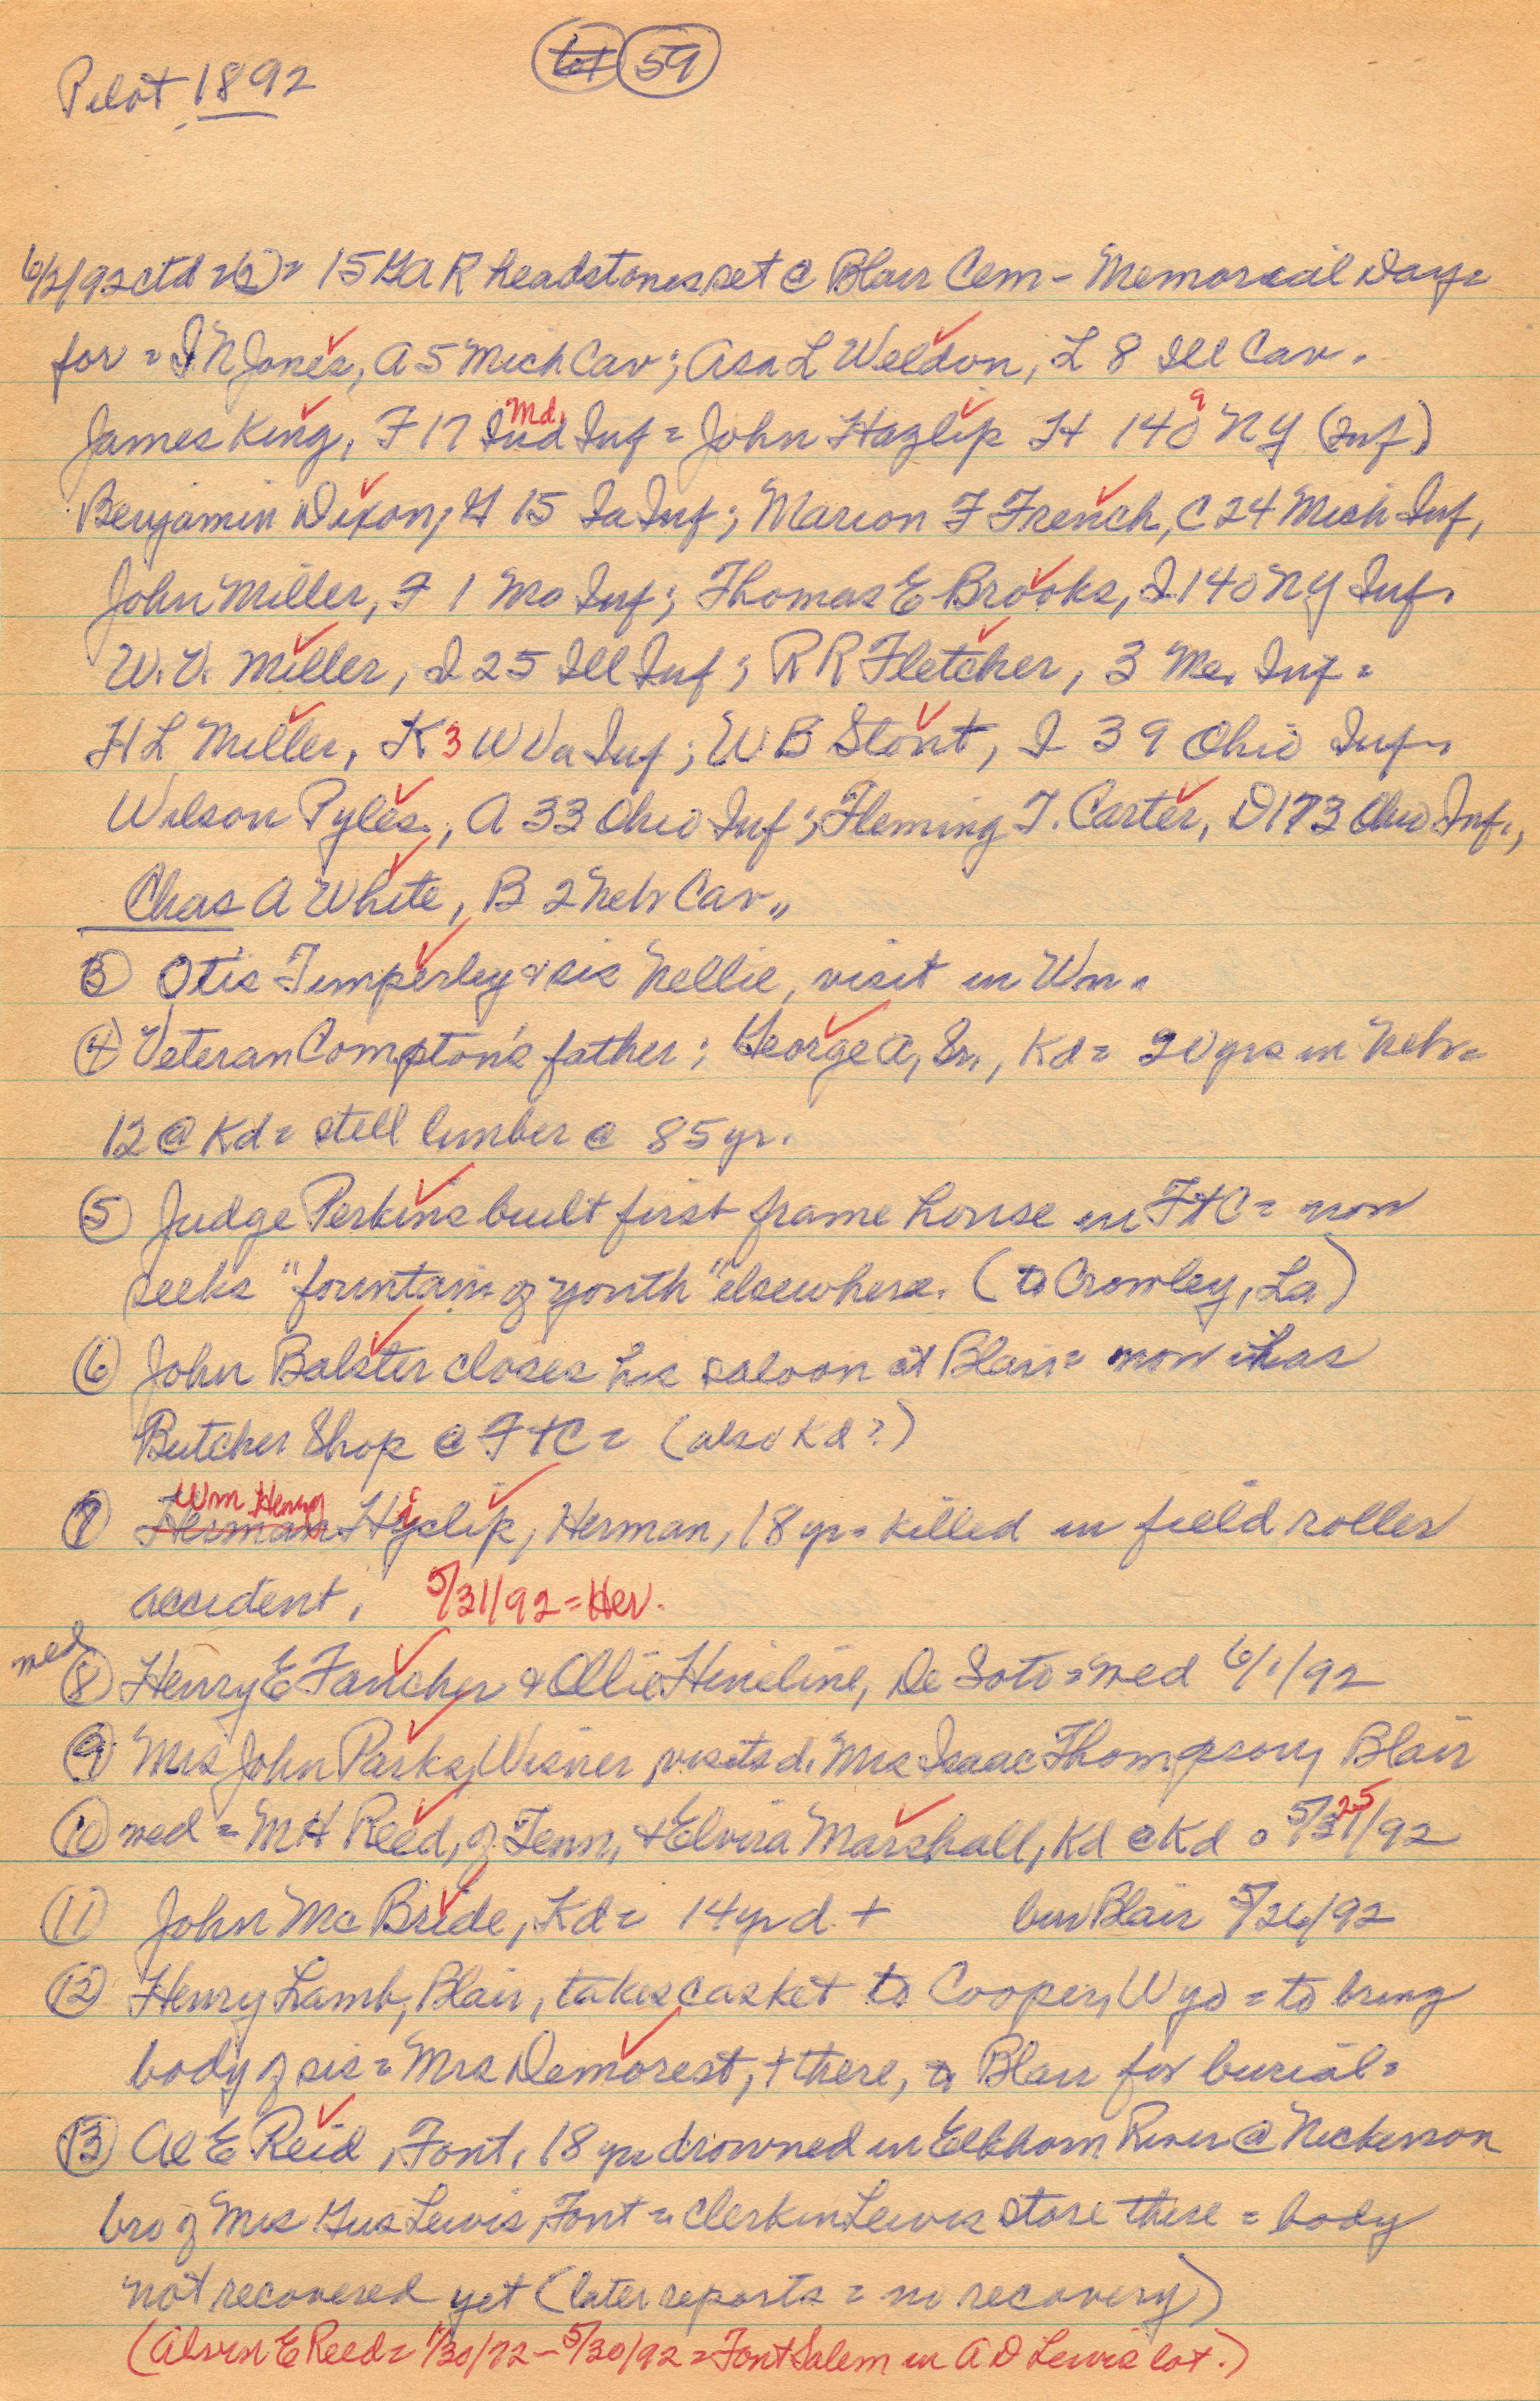 Pilot 1892
59
6/2/92 ctd = (2) = 15 GAR headstones set @ Blair Cem - Memorial Day =
for = I N Jones, A 5 Mich Cav; Asa L Weldon, L 8 Ill Cav.
Md. 9
James King, F 17 Ind Inf = John Hazlip H 140 NY (Inf)
Benjamin Dixon, G 15 Ia Inf; Marion F French, C 24 Mich Inf,
John Miller, F 1 Mo Inf; Thomas E Brooks, I 140 NY Inf.
W. V. Miller, I 25 Ill Inf; R R Fletcher, 3 Me. Inf =
H L Miller, K 3 W Va Inf; W B Stont, I 39 Ohio Inf.
Wilson Pyles, A 33 Ohio Inf; Fleming T. Carter, D 173 Ohio Inf.,
Chas A White, B 2 Neb Cav,,
(3) Otis Timperley & sis Nellie, visit in Wn.
(4) Veteran Compton's father; George A, Sr., Kd = 20 yrs in Neb =
12 @ Kd = still limber @ 85 yr.
(5) Judge Perkins built first frame house in FtC = now
seeks "fountain of youth" elsewhere. (to Crowley, La)
(6) John Balster closes his saloon at Blair = now has
Butcher Shop @ FtC = (also Kd?)
Wm Henry i
(7) Herman Hyslip, Herman, 18 yr = killed in field roller
accident, 5/31/92 = Her.
med
(8) Henry E Fancher & Ollie Hineline, De Soto = med 6/1/92
(9) Mrs John Parks, Wisner, visits d. Mrs Isaac Thompson, Blair
25
(10) med = M H Reed, of Tenn, & Elvira Marshall, Kd @ Kd = 5/31/92
(11) John McBride, Kd = 14 yr d. + bur Blair 5/26/92
(12) Henry Lamb, Blair, takes casket to Cooper, Wyo = to bring
body of sis = Mrs Demorest, + there, to Blair for burial =
(13) Al E Reid, Font, 18 yr drowned in Elkhorn River @ Nickerson
bro of Mrs Gus Lewis, Font = clerk in Lewis store there = body
not recovered yet (later reports = no recovery)
(Alvin E Reed = 1/30/72 - 5/30/92 = Font Salem in A D Lewis lot.)